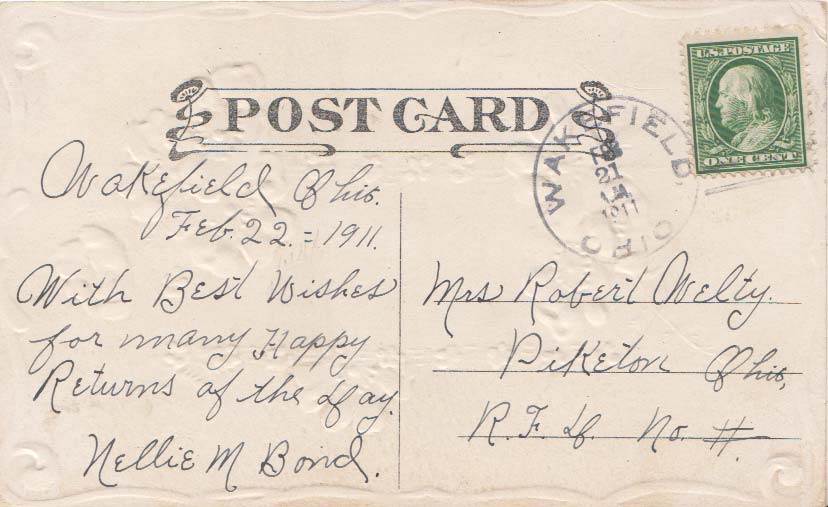 POST CARD
U.S. POSTAGE
ONE CENT
WAKEFIELD, OHIO
21
1911
Wakefield Ohio.
Feb. 22. = 1911.
With Best Wishes
for many Happy
Returns of the Day.
Nellie M Bond.
Mrs Robert Welty.
Piketon Ohio,
R. F. D. No. #.